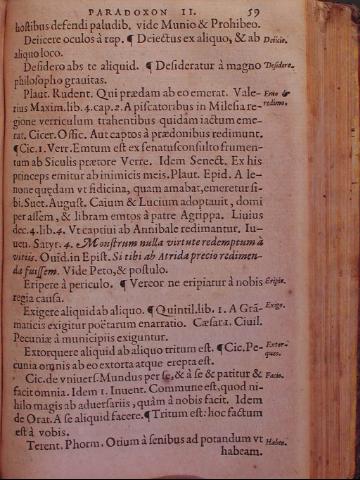 PARADOXON II. 59
hostibus defendi paludib. vide Munio & Prohibeo.
Deiicere oculos à rep. ¶ Deiectus ex aliquo, & ab Deiicio.
aliquo loco.
Desidero abs te aliquid. ¶ Desideratur à magno Desidero.
philosopho grauitas.
Plaut. Rudent. Qui prædam ab eo emerat. Vale- Emo &
rius Maxim. lib. 4. cap. 2. A piscatoribus in Milesia re- redimo.
gione verriculum trahentibus quidam iactum eme-
rat. Cicer. Offic. Aut captos à prædonibus redimunt.
¶ Cic. 1. Verr. Emtum est ex senatusconsulto frumen-
tum ab Siculis prætore Verre. Idem Senect. Ex his
princeps emitur ab inimicis meis. Plaut. Epid. A le-
none quędam vt fidicina, quam amabat, emeretur si-
bi. Suet. August. Caium & Lucium adoptauit, domi
per assem, & libram emtos à patre Agrippa. Liuius
dec. 4. lib. 4. Vt captiui ab Annibale redimantur. Iu-
uen. Satyr. 4. Monstrum nulla virtute redemptum à
vitiis. Ouid. in Epist. Si tibi ab Atrida precio redimen-
da fuissem. Vide Peto, & postulo.
Eripere à periculo. ¶ Vereor ne eripiatur à nobis Eripio.
regia causa.
Exigere aliquid ab aliquo. ¶ Quintil. lib. 1. A Grā- Exigo.
maticis exigitur poëtarum enarratio. Cæsar 2. Ciuil.
Pecuniæ à municipiis exiguntur.
Extorquere aliquid ab aliquo tritum est. ¶ Cic. Pe- Extor-
cunia omnis ab eo extorta atque erepta est. queo.
Cic. de vniuers. Mundus per se, & à se & patitur & Facio.
facit omnia. Idem 1. Inuent. Commune est, quod ni-
hilo magis ab aduersariis, quàm à nobis facit. Idem
de Orat. A se aliquid facere. ¶ Tritum est: hoc factum
est à vobis.
Terent. Phorm. Otium à senibus ad potandum vt Habeo.
habeam.